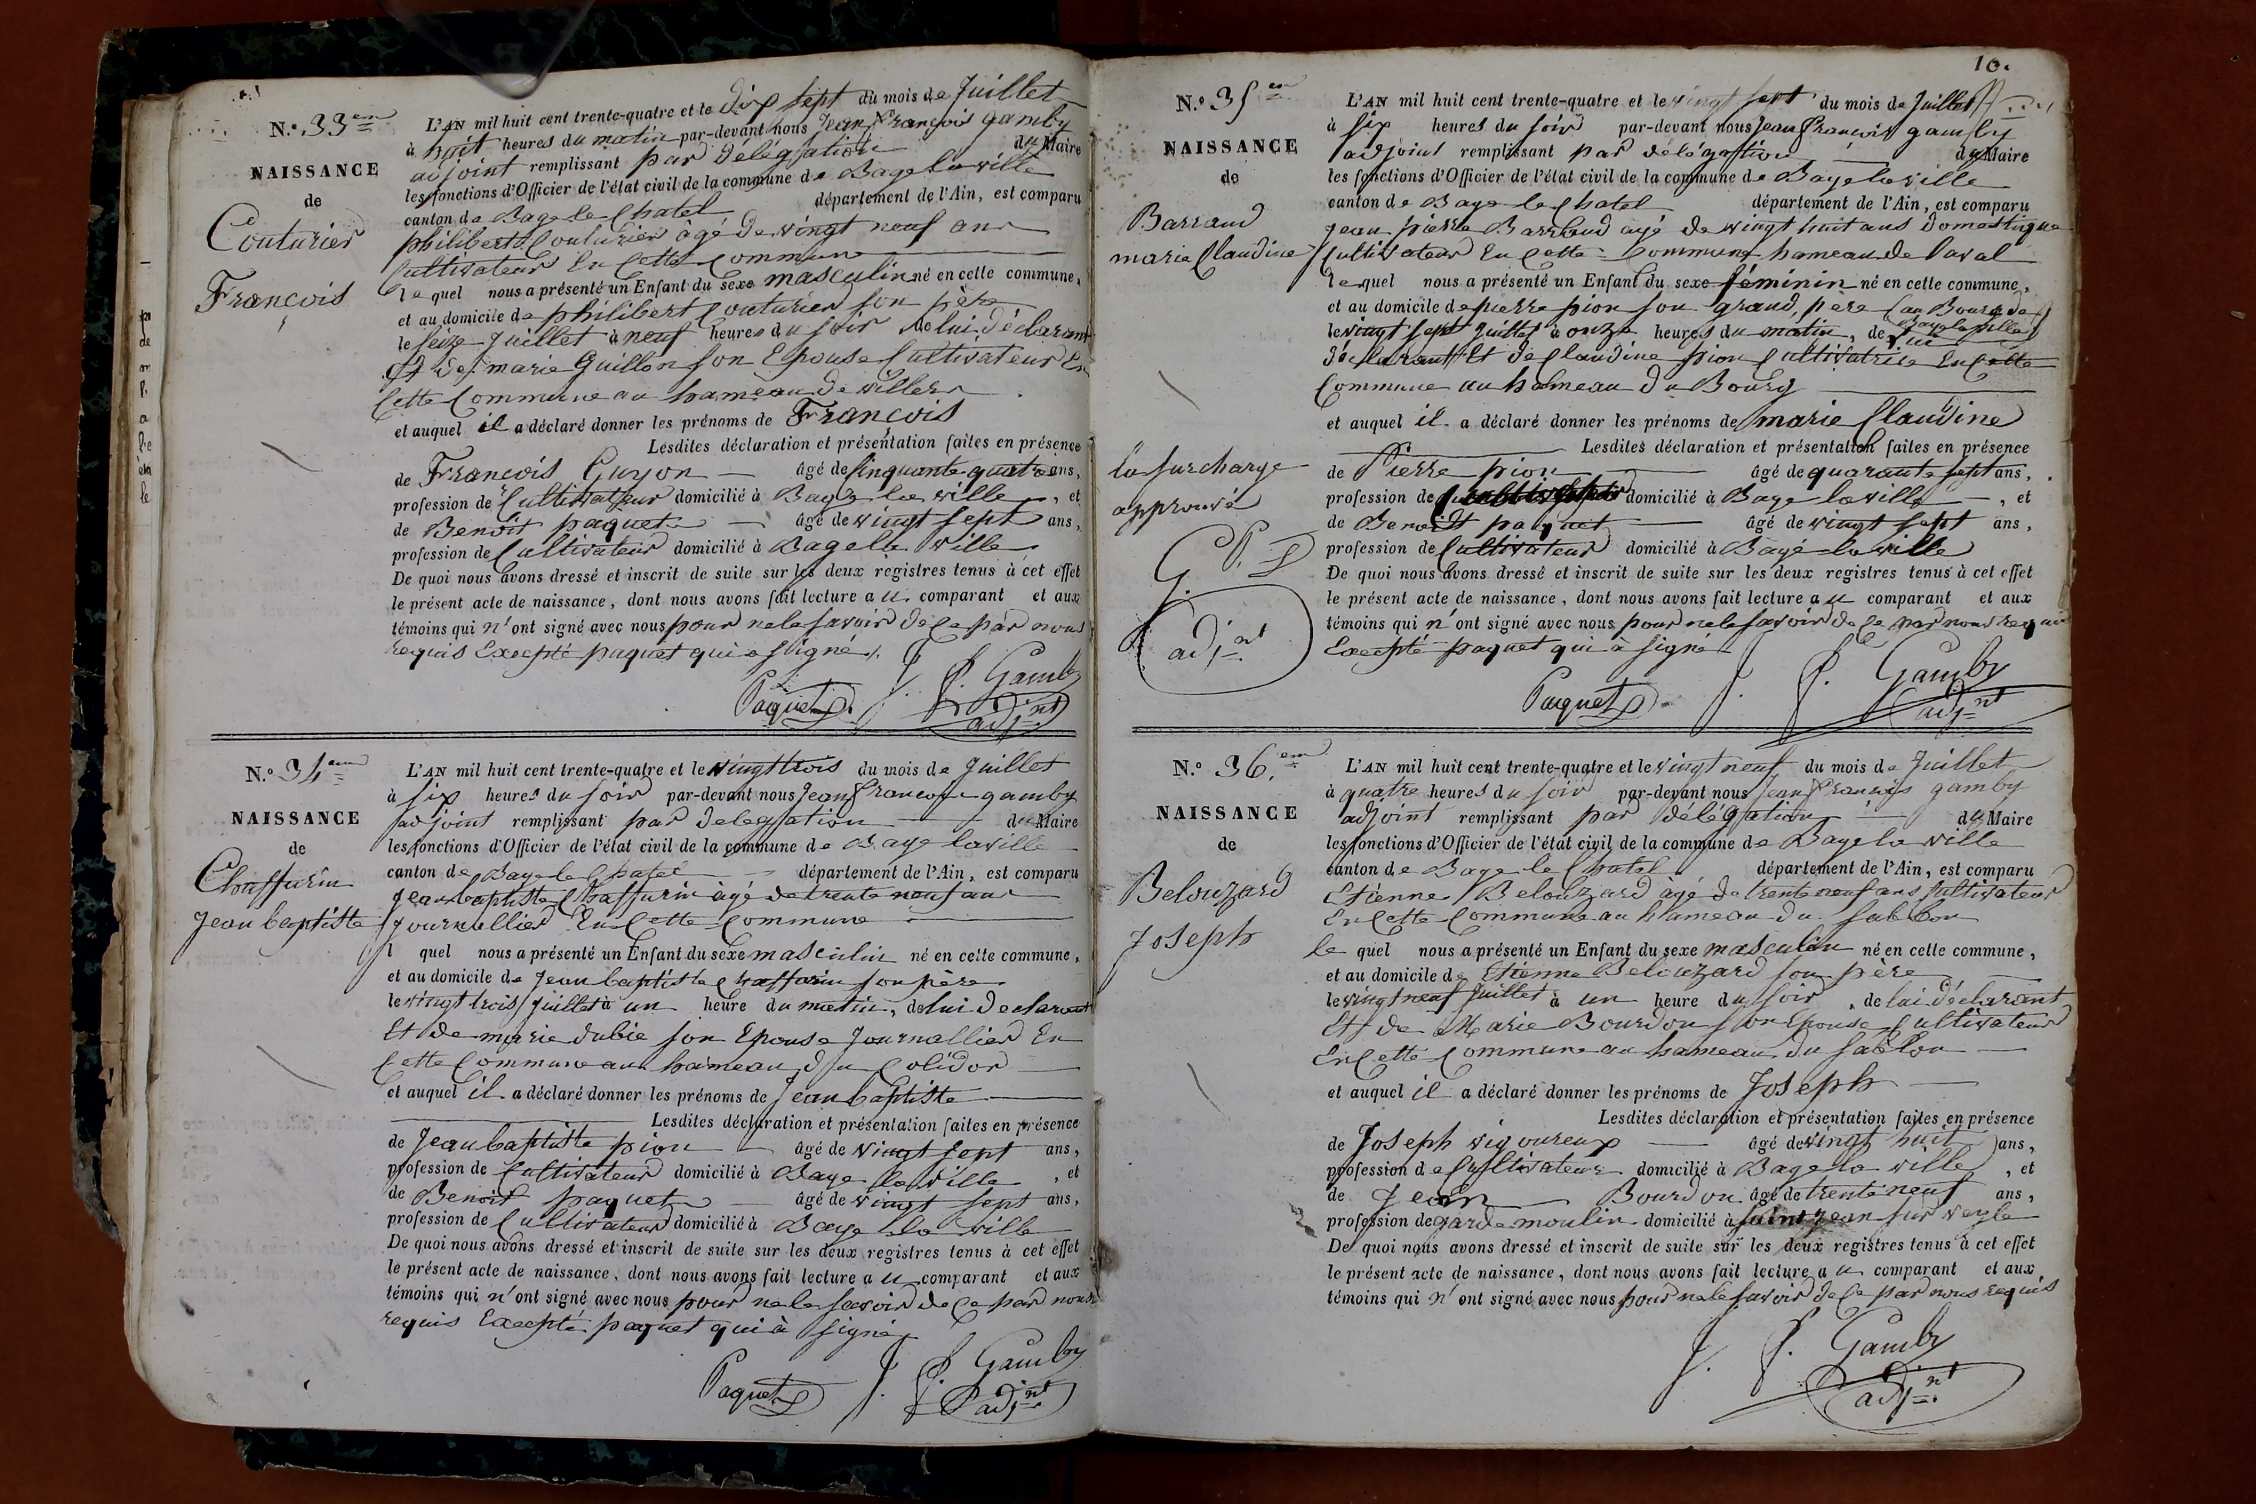 N.º 33em
NAISSANCE
de
Couturier
François
L'AN mil huit cent trente-quatre et le dix sept du mois de Juillet
à huit heures du matin par-devant nous Jean François gamby
adjoint remplissant par délégation du Maire
les fonctions d'Officier de l'état civil de la commune de Bage la ville
canton de Bage le Chatel département de l'Ain, est comparu
philibert Couturier âgé de vingt neuf ans
Cultivateur En Cette Commune
le quel nous a présenté un Enfant du sexe masculin né en cette commune,
et au domicile de philibert Couturier son père
le seize Juillet à neuf heures du soir de lui déclarant
Et de marie Guillon son Epouse Cultivateur En
Cette Commune au hameau de villers
et auquel il a déclaré donner les prénoms de François
Lesdites déclaration et présentation faites en présence
de François Guyon âgé de Cinquante quatre ans,
profession de Cultivateur domicilié à Bage la ville, et
de Benoit paquet âgé de vingt sept ans,
profession de Cultivateur domicilié à Bage la ville
De quoi nous avons dressé et inscrit de suite sur les deux registres tenus à cet effet
le présent acte de naissance, dont nous avons fait lecture au comparant et aux
témoins qui n'ont signé avec nous pour ne le savoir de ce par nous
requis Excepté paquet qui a signé
Paquet J. F. Gamby
adjnt
N.º 34em
NAISSANCE
de
Chaffurin
Jean baptiste
L'AN mil huit cent trente-quatre et le vingt trois du mois de Juillet
à six heures du soir par-devant nous Jean François gamby
adjoint remplissant par delegation du Maire
les fonctions d'Officier de l'état civil de la commune de Bage la ville
canton de Bage le Chatel département de l'Ain, est comparu
Jean baptiste Chaffurin âgé de trente neuf ans
Journallier En Cette Commune
l quel nous a présenté un Enfant du sexe masculin né en cette commune,
et au domicile de Jean baptiste Chaffurin son père
le vingt trois Juillet à un heure du matin, de lui déclarant
Et de marie dubie son Epouse Journallier En
Cette Commune au hameau du Colidor
et auquel il a déclaré donner les prénoms de Jean baptiste
Lesdites déclaration et présentation faites en présence
de Jean baptiste pion âgé de vingt sept ans,
profession de Cultivateur domicilié à Bage la ville, et
de Benoit paquet âgé de vingt sept ans,
profession de Cultivateur domicilié à Bage la ville
De quoi nous avons dressé et inscrit de suite sur les deux registres tenus à cet effet
le présent acte de naissance, dont nous avons fait lecture au comparant et aux
témoins qui n'ont signé avec nous pour ne le savoir de ce par nous
requis Excepté paquet qui à signé
Paquet J. F. Gamby
adjnt
10.
N.º 35em
NAISSANCE
de
Barraud
marie Claudine
la surcharge
approuvé
G. adjnt
L'AN mil huit cent trente-quatre et le vingt sept du mois de Juillet
à six heures du soir par-devant nous Jean François gamby
adjoint remplissant par délégation du Maire
les fonctions d'Officier de l'état civil de la commune de Bage la ville
canton de Bage le Chatel département de l'Ain, est comparu
Jean pierre Barraud agé de vingt huit ans domestique
Cultivateur En Cette Commune hameau de Laval
le quel nous a présenté un Enfant du sexe féminin né en cette commune,
et au domicile de pierre pion son grand père (au Bourg de
Bage la ville)
le vingt sept Juillet à onze heures du matin, de lui
déclarant Et de Claudine pion Cultivatrice En Cette
Commune au hameau du Bourg
et auquel il a déclaré donner les prénoms de marie Claudine
Lesdites déclaration et présentation faites en présence
de Pierre pion âgé de quarante sept ans,
profession de domicilié à Bage la ville, et
de Benoit paquet âgé de vingt sept ans,
profession de Cultivateur domicilié à Bagé la ville
De quoi nous avons dressé et inscrit de suite sur les deux registres tenus à cet effet
le présent acte de naissance, dont nous avons fait lecture au comparant et aux
témoins qui n'ont signé avec nous pour ne le savoir de ce par nous requis
Excepté paquet qui à signé
Paquet J. F. Gamby
adjnt
N.º 36.em
NAISSANCE
de
Belouzard
Joseph
L'AN mil huit cent trente-quatre et le vingt neuf du mois de Juillet
à quatre heures du soir par-devant nous Jean François gamby
adjoint remplissant par délégation du Maire
les fonctions d'Officier de l'état civil de la commune de Bage la ville
canton de Bage le Chatel département de l'Ain, est comparu
Etienne Belouzard âgé de trente neuf ans Cultivateur
En Cette Commune au hameau du Sablon
le quel nous a présenté un Enfant du sexe masculin né en cette commune,
et au domicile de Etienne Belouzard son père
le vingt neuf Juillet à un heure du soir, de lui déclarant
Et de Marie Bourdon son Epouse Cultivateur
En Cette Commune au hameau du Sablon
et auquel il a déclaré donner les prénoms de Joseph
Lesdites déclaration et présentation faites en présence
de Joseph vigoureux âgé de vingt huit ans,
profession de Cultivateur domicilié à Bage la ville, et
de Jean Bourdon âgé de trente neuf ans,
profession de garde moulin domicilié à Saint Jean sur veyle
De quoi nous avons dressé et inscrit de suite sur les deux registres tenus à cet effet
le présent acte de naissance, dont nous avons fait lecture au comparant et aux
témoins qui n'ont signé avec nous pour ne le savoir de ce par nous requis
J. F. Gamby
adjnt.